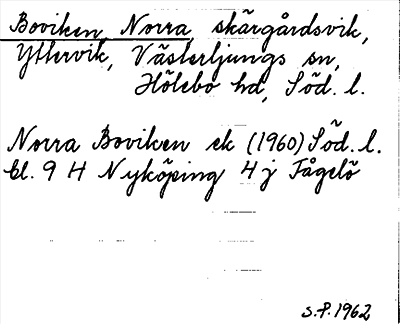 Boviken, Norra skärgårdsvik,
Yttervik, Västerljungs sn,
Hölebo hd, Söd. l.
Norra Boviken ek (1960) Söd. l.
bl. 9 H Nyköping 4 j Fågelö
S.P. 1962